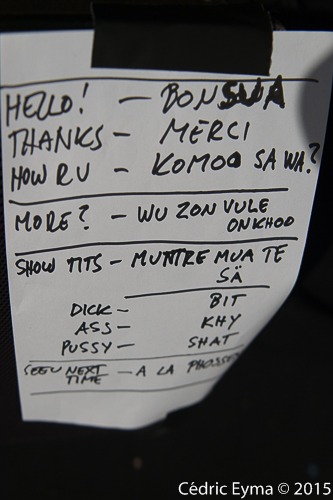 HELLO! – BONSUA
THANKS – MERCI
HOW R U – KOMOO SA WA?
MORE? – WU ZON VULE
ONKHOO
SHOW TITS – MUNTRE MUA TE
SÄ
DICK – BIT
ASS – KHY
PUSSY – SHAT
SEE U NEXT
TIME – A LA
Cédric Eyma © 2015